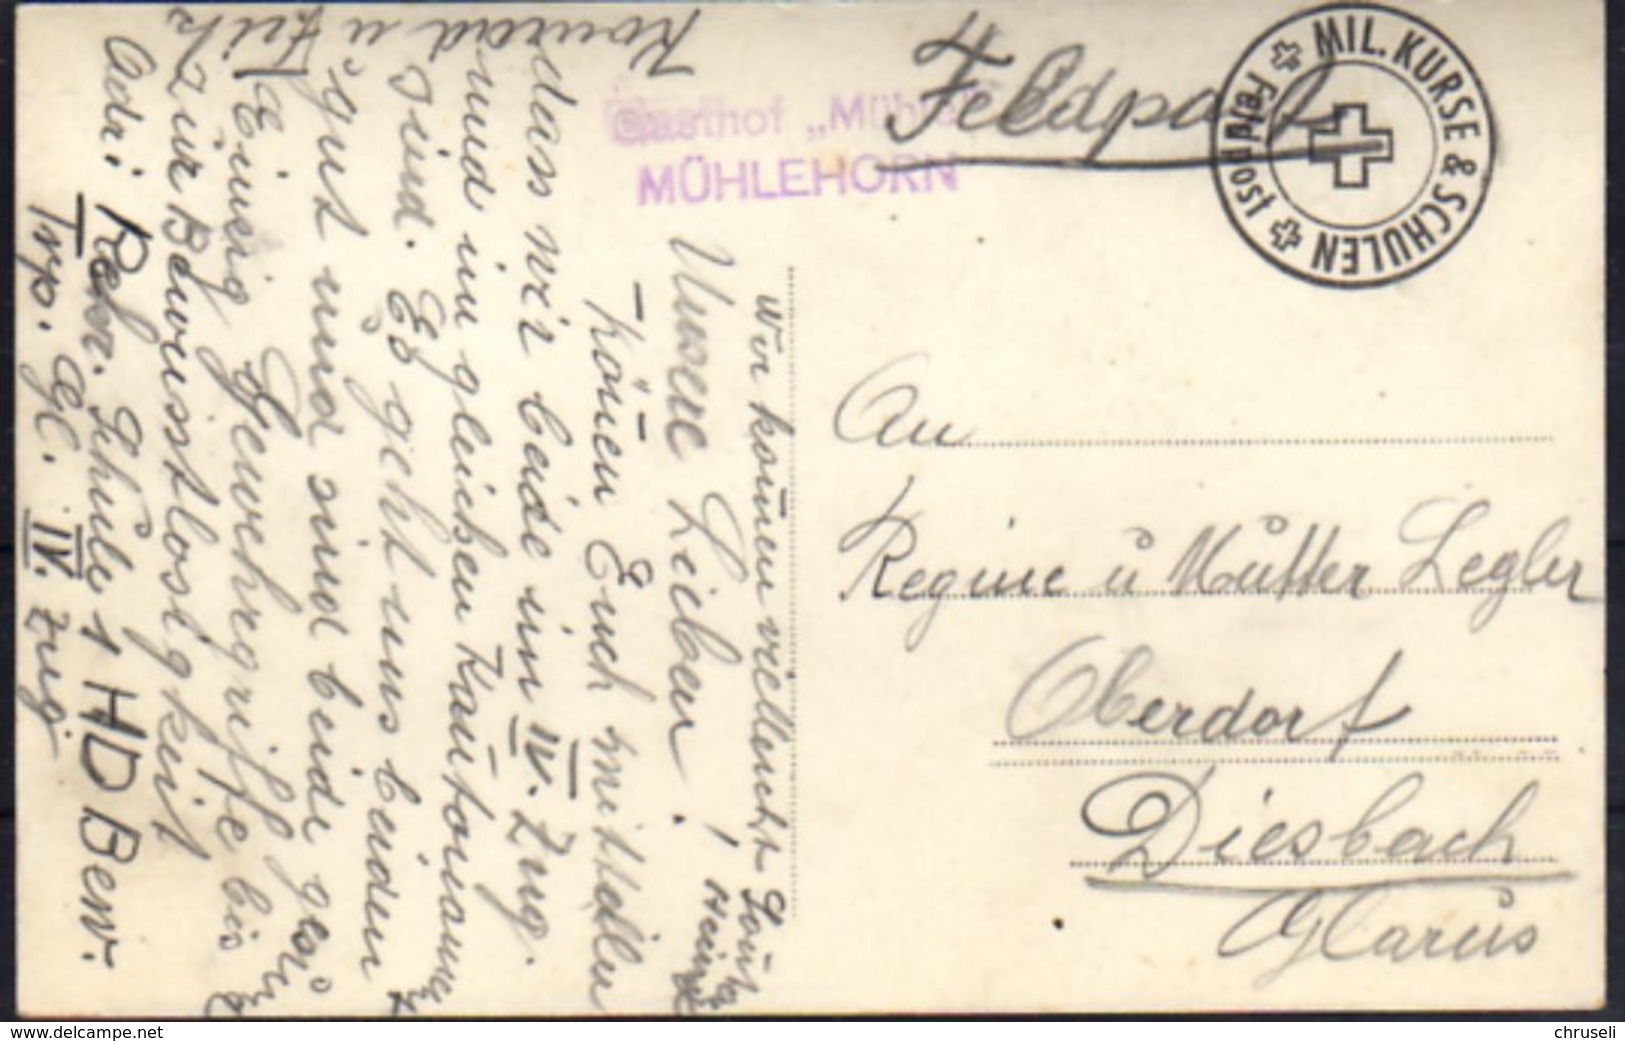 Feldpost
MIL. KURSE & SCHULEN
Feldpost
Gasthof „Mühle"
MÜHLEHORN
An
Regine u Mutter Legler
Oberdorf
Diesbach
Glarus
Wir könen vielleicht
Heim
Unsere Lieben!
Könen Euch mitteilen
dass wir beide im IV. Zug.
und im gleichen Kantonnement
sind. Es geht uns beiden
gut und sind beide gesund
Einzig Gewehrgriffe bis
zur Bewusstlosigkeit
Konrad u Fritz
Adr: Rekr. Schule 1 HD Bew.
Trp. Gl. IV. Zug
www.delcampe.net
chruseli